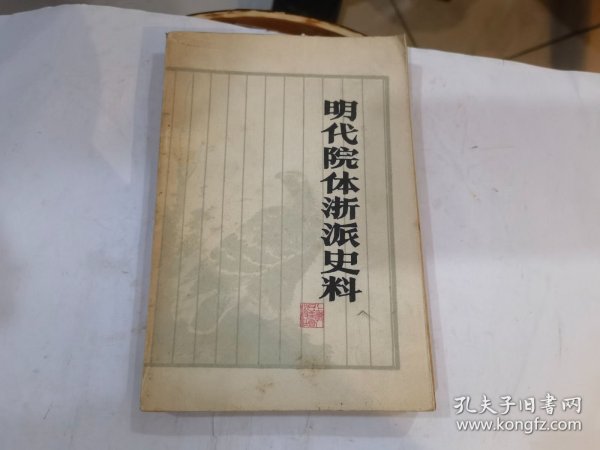 明代院体浙派史料
孔夫子旧书网
www.kongfz.com